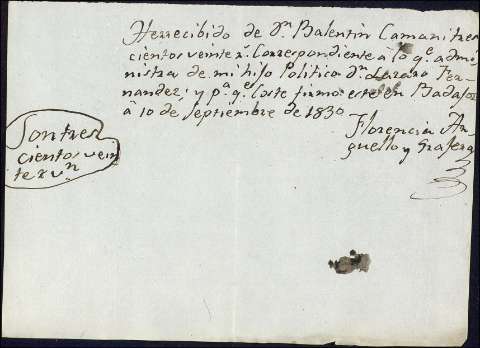 Herrecibido de Dn. Balentin Camani tres
cientos veinte rs. Correspondiente â lo qe. admi
nistra de mi hijo Politico Dn. Lazaro Fer
nandez; y pa. qe. Coste firmo este en Badajoz
â 10 de Septiembre de 1830
Florencia Ar
guello y Grajera
Son tres
cientos vein
te r vn